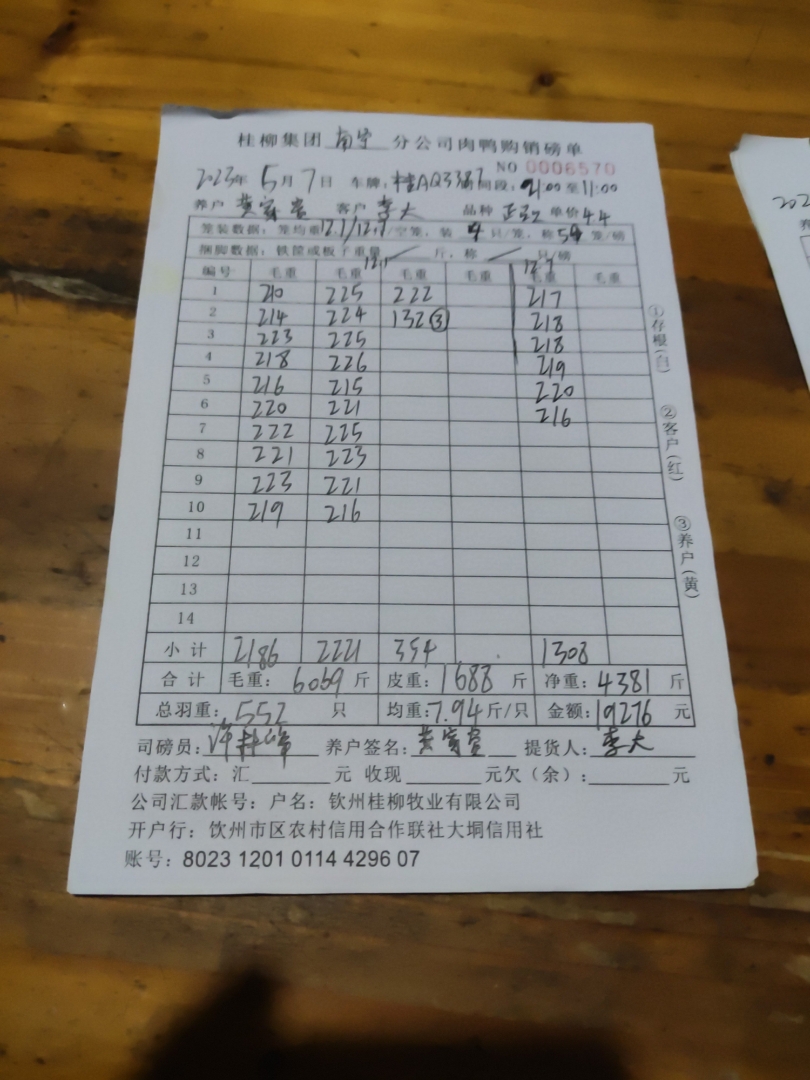 桂柳集团 南宁 分公司肉鸭购销磅单
NO 0006570
2023年 5月 7日 车牌: 桂AQ3387 时间段: 9:00至11:00
养户 黄家 客户 李大 品种 单价4.4
笼装数据: 笼均重12.1/12.7/空笼, 装 4 只/笼, 称 5 笼/磅
捆脚数据: 铁筐或板子重量 斤, 称 只/磅
12.1 12.7
编号 毛重 毛重 毛重 毛重 毛重 毛重
1 210 225 222 217
2 214 224 132③ 218
3 223 225 218
4 218 226 219
5 216 215 220
6 220 221 216
7 222 225
8 221 223
9 223 221
10 219 216
11
12
13
14
小计 2186 2221 354 1308
合计 毛重: 6069 斤 皮重: 1688 斤 净重: 4381 斤
总羽重: 552 只 均重: 7.94斤/只 金额: 19276 元
司磅员: 养户签名: 黄家 提货人: 李大
付款方式: 汇 元 收现 元欠(余): 元
公司汇款帐号: 户名: 钦州桂柳牧业有限公司
开户行: 钦州市区农村信用合作联社大垌信用社
账号: 8023 1201 0114 4296 07
①存根(白)
②客户(红)
③养户(黄)
202